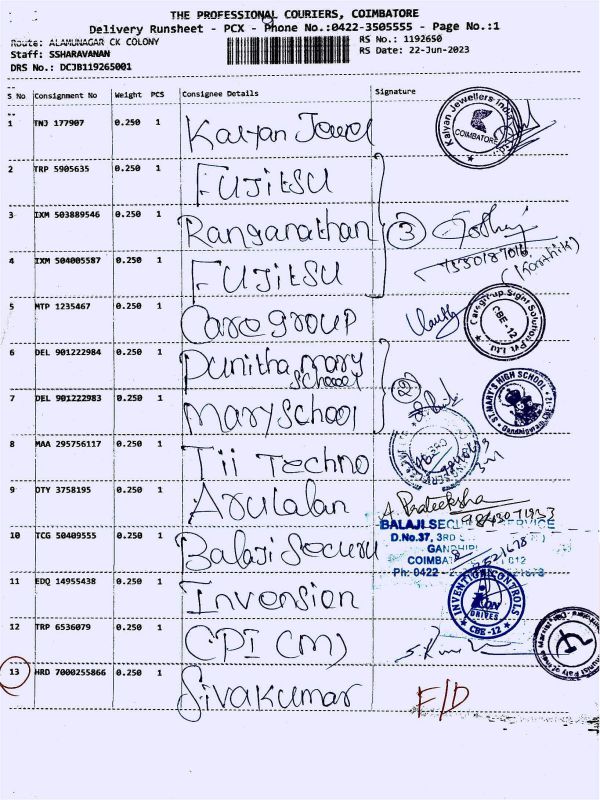 THE PROFESSIONAL COURIERS, COIMBATORE
Delivery Runsheet - PCX - Phone No.:0422-3505555 - Page No.:1
Route: ALAMUNAGAR CK COLONY
RS No.: 1192650
Staff: SSHARAVANAN
RS Date: 22-Jun-2023
DRS No.: DCJB119265001
S No Consignment No Weight PCS Consignee Details Signature
1 TNJ 177907 0.250 1 Kalyan Jewel
Kalyan Jewellers India
COIMBATORE
2 TRP 5905635 0.250 1 FUJitSU
3 IXM 503889546 0.250 1 Ranganathan 3
4 IXM 504005587 0.250 1 FUJitSU
(Karthik)
5 MTP 1235467 0.250 1 Care group
Caregroup Sight Solution Pvt. Ltd
CBE - 12
6 DEL 901222984 0.250 1 Punitha mary School
2
7 DEL 901222983 0.250 1 Mary School
ST. MARY'S HIGH SCHOOL
8 MAA 295756117 0.250 1 Tii Techno
9 OTY 3758195 0.250 1 Arulalan
A. Prateeksha
10 TCG 50409555 0.250 1 Balaji Securu
BALAJI SECURITY SERVICE
D.No.37, 3RD
Ph: 0422 -
11 EDQ 14955438 0.250 1 Invension
INVENTION CONTROLS
DRIVES
CBE -12
12 TRP 6536079 0.250 1 CPI (M)
13 HRD 7000255866 0.250 1 Sivakumar F/D